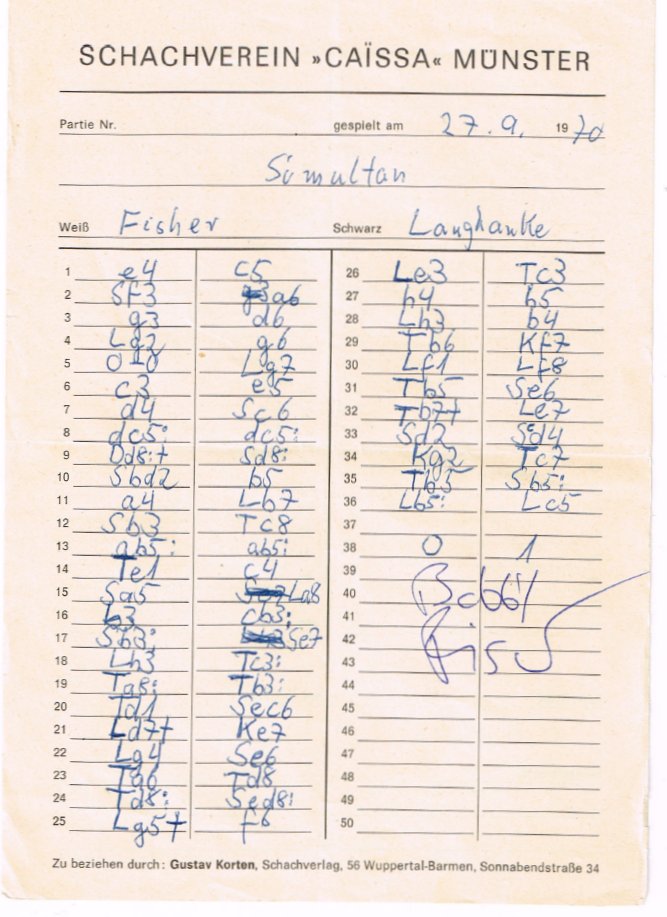 SCHACHVEREIN »CAÏSSA« MÜNSTER
Partie Nr. gespielt am 27. 9. 1970
Simultan
Weiß Fisher Schwarz Langhanke
1 e4 c5
2 Sf3 a6
3 g3 d6
4 Lg2 g6
5 0-0 Lg7
6 c3 e5
7 d4 Sc6
8 dc5: dc5:
9 Dd8:+ Sd8:
10 Sbd2 b5
11 a4 Lb7
12 Sb3 Tc8
13 ab5: ab5:
14 Te1 c4
15 Sa5 La8
16 b3 cb3:
17 Sb3: Se7
18 Lh3 Tc3:
19 Ta8: Tb3:
20 Td1 Sec6
21 Ld7+ Ke7
22 Lg4 Se6
23 Ta6 Td8
24 Td8: Sed8:
25 Lg5+ f6
26 Le3 Tc3
27 h4 h5
28 Lh3 b4
29 Tb6 Kf7
30 Lf1 Lf8
31 Tb5 Se6
32 Tb7+ Le7
33 Sd2 Sd4
34 Kg2 Tc7
35 Tb5 Sb5:
36 Lb5: Lc5
37
38 0 1
39
40 Bobby
41
42 Fis
43
44
45
46
47
48
49
50
Zu beziehen durch: Gustav Korten, Schachverlag, 56 Wuppertal-Barmen, Sonnabendstraße 34